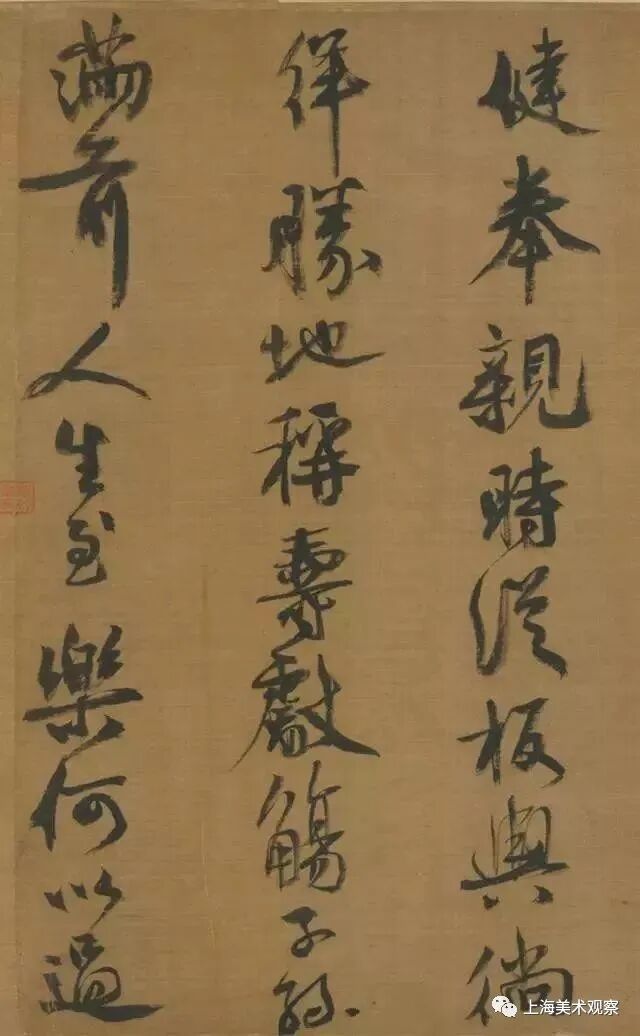 健奉親時從板輿徜
徉勝地稱壽獻觴子孫
滿前人生至樂何以過
上海美术观察